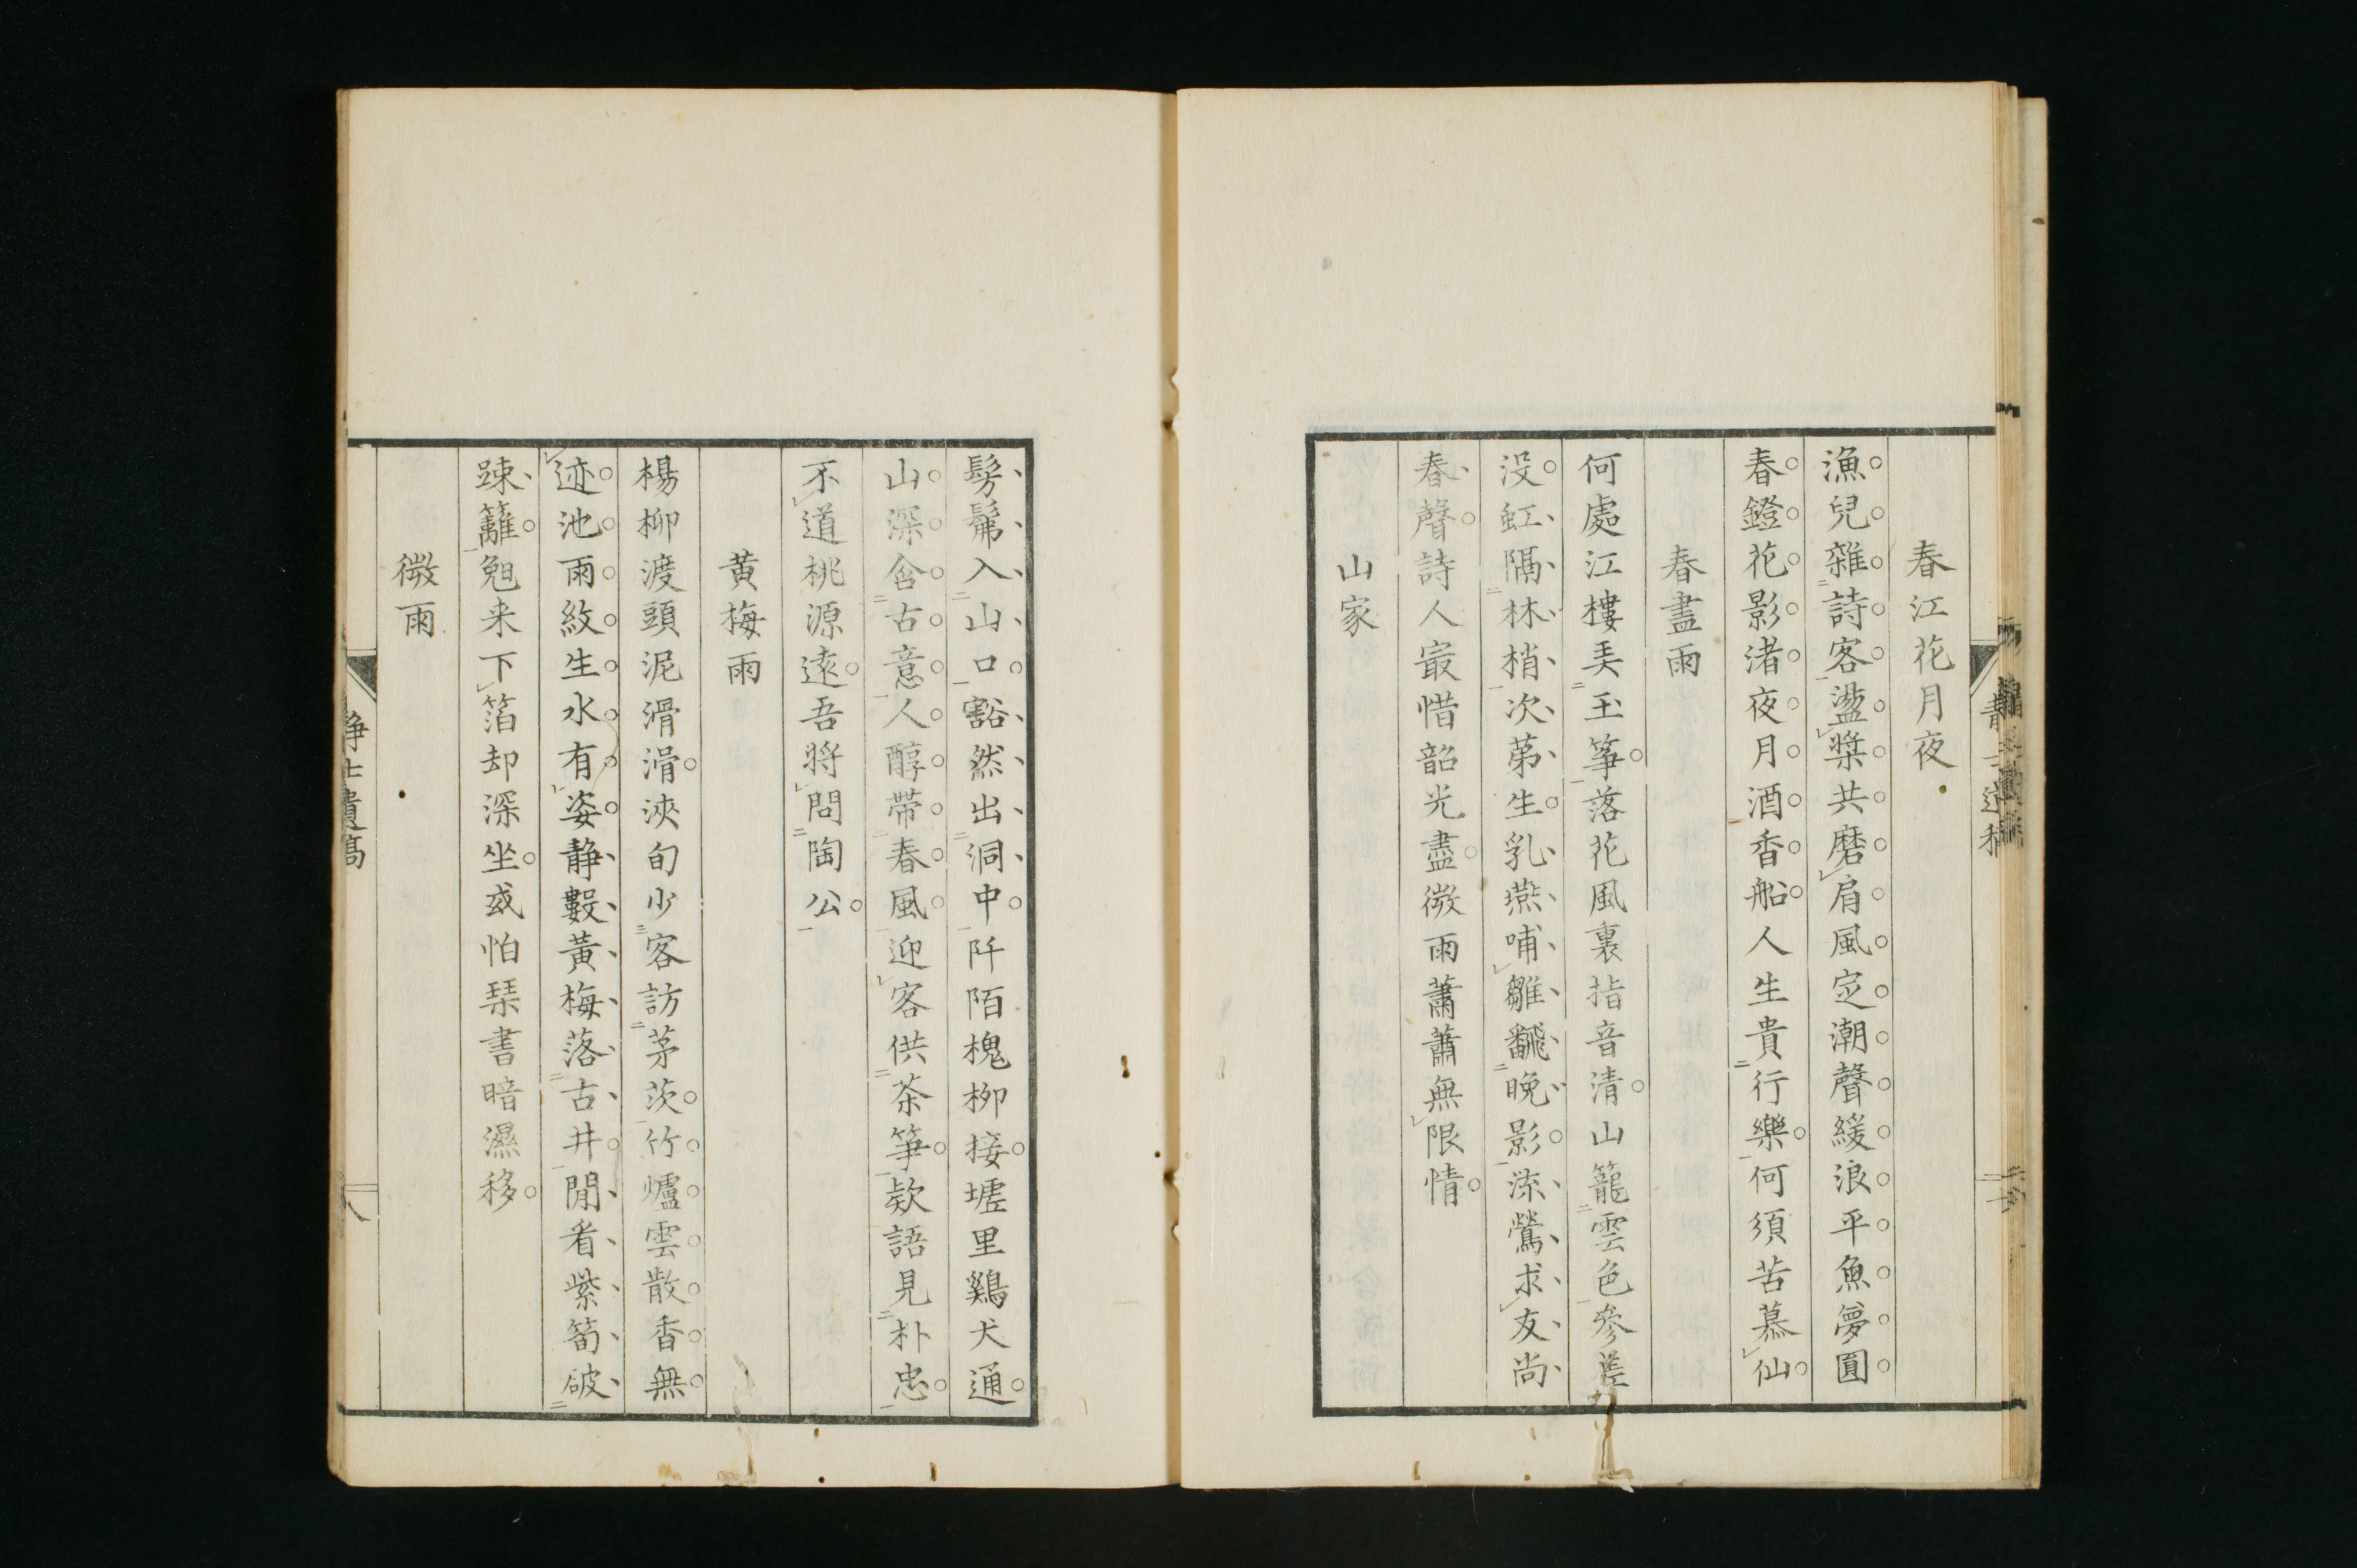 春江花月夜
漁兒雜詩客盪槳共磨肩風定潮聲緩浪平魚夢圓
春鐙花影渚夜月酒香船人生貴行樂何須苦慕仙
春盡雨
何處江樓美玉箏落花風裏指音清山籠雲色參差
没虹隔林梢次第生乳燕哺雛飜晚影流鶯求友尚
春聲詩人寂惜韶光盡微雨蕭蕭無限情
山家
髣髴入山口豁然出洞中阡陌槐柳接墟里鷄犬通
山深含古意人醇帶春風迎客供茶筍欵語見朴忠
不道桃源遠吾將問陶公
黄梅雨
楊柳渡頭泥滑滑浹旬少客訪茅茨竹爐雲散香無
迹池雨紋生水有姿静數黃梅落古井閒看紫筍破
踈籬兔来下箔却深坐或怕琴書暗濕移
微雨
静士遺稿
八